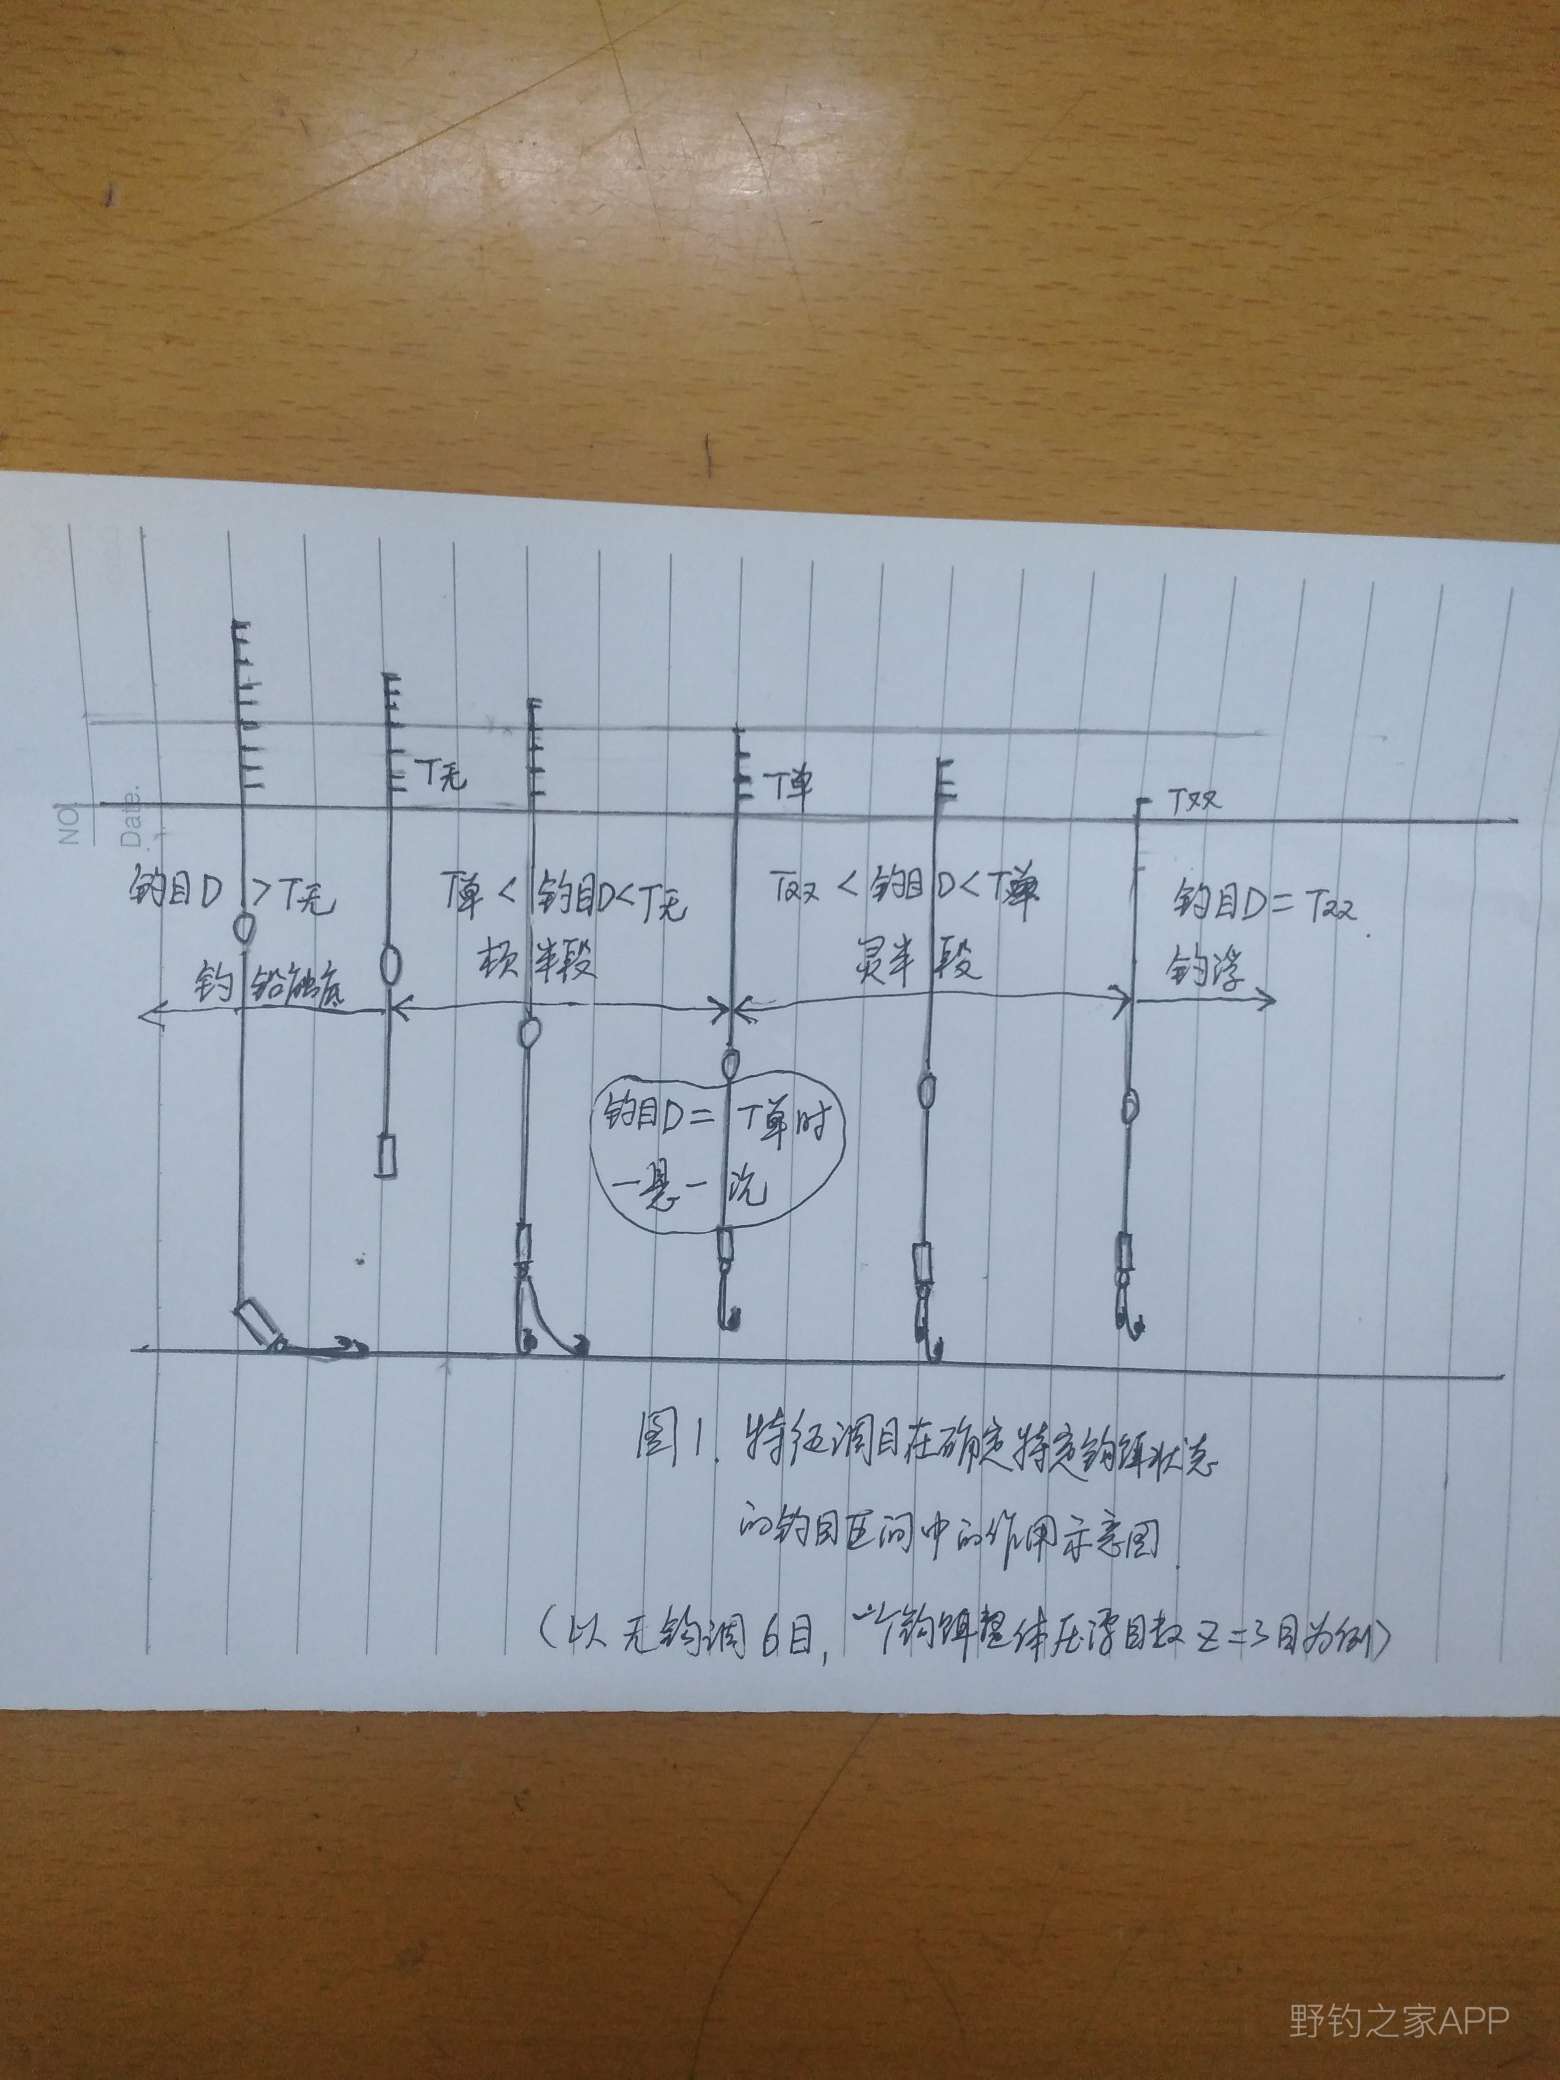 NO.
Date.
T无
T单
T双
钓目D > T无
钓铅触底
T单 < 钓目D < T无
顿半段
T双 < 钓目D < T单
灵半段
钓目D = T双
钓浮
钓目D = T单时
一悬一沉
图1. 特征调目在确定特定钩饵状态
的钓目区间中的作用示意图.
(以无钩调6目, 一个钩饵整体压漂目数Z=3目为例)
野钓之家APP